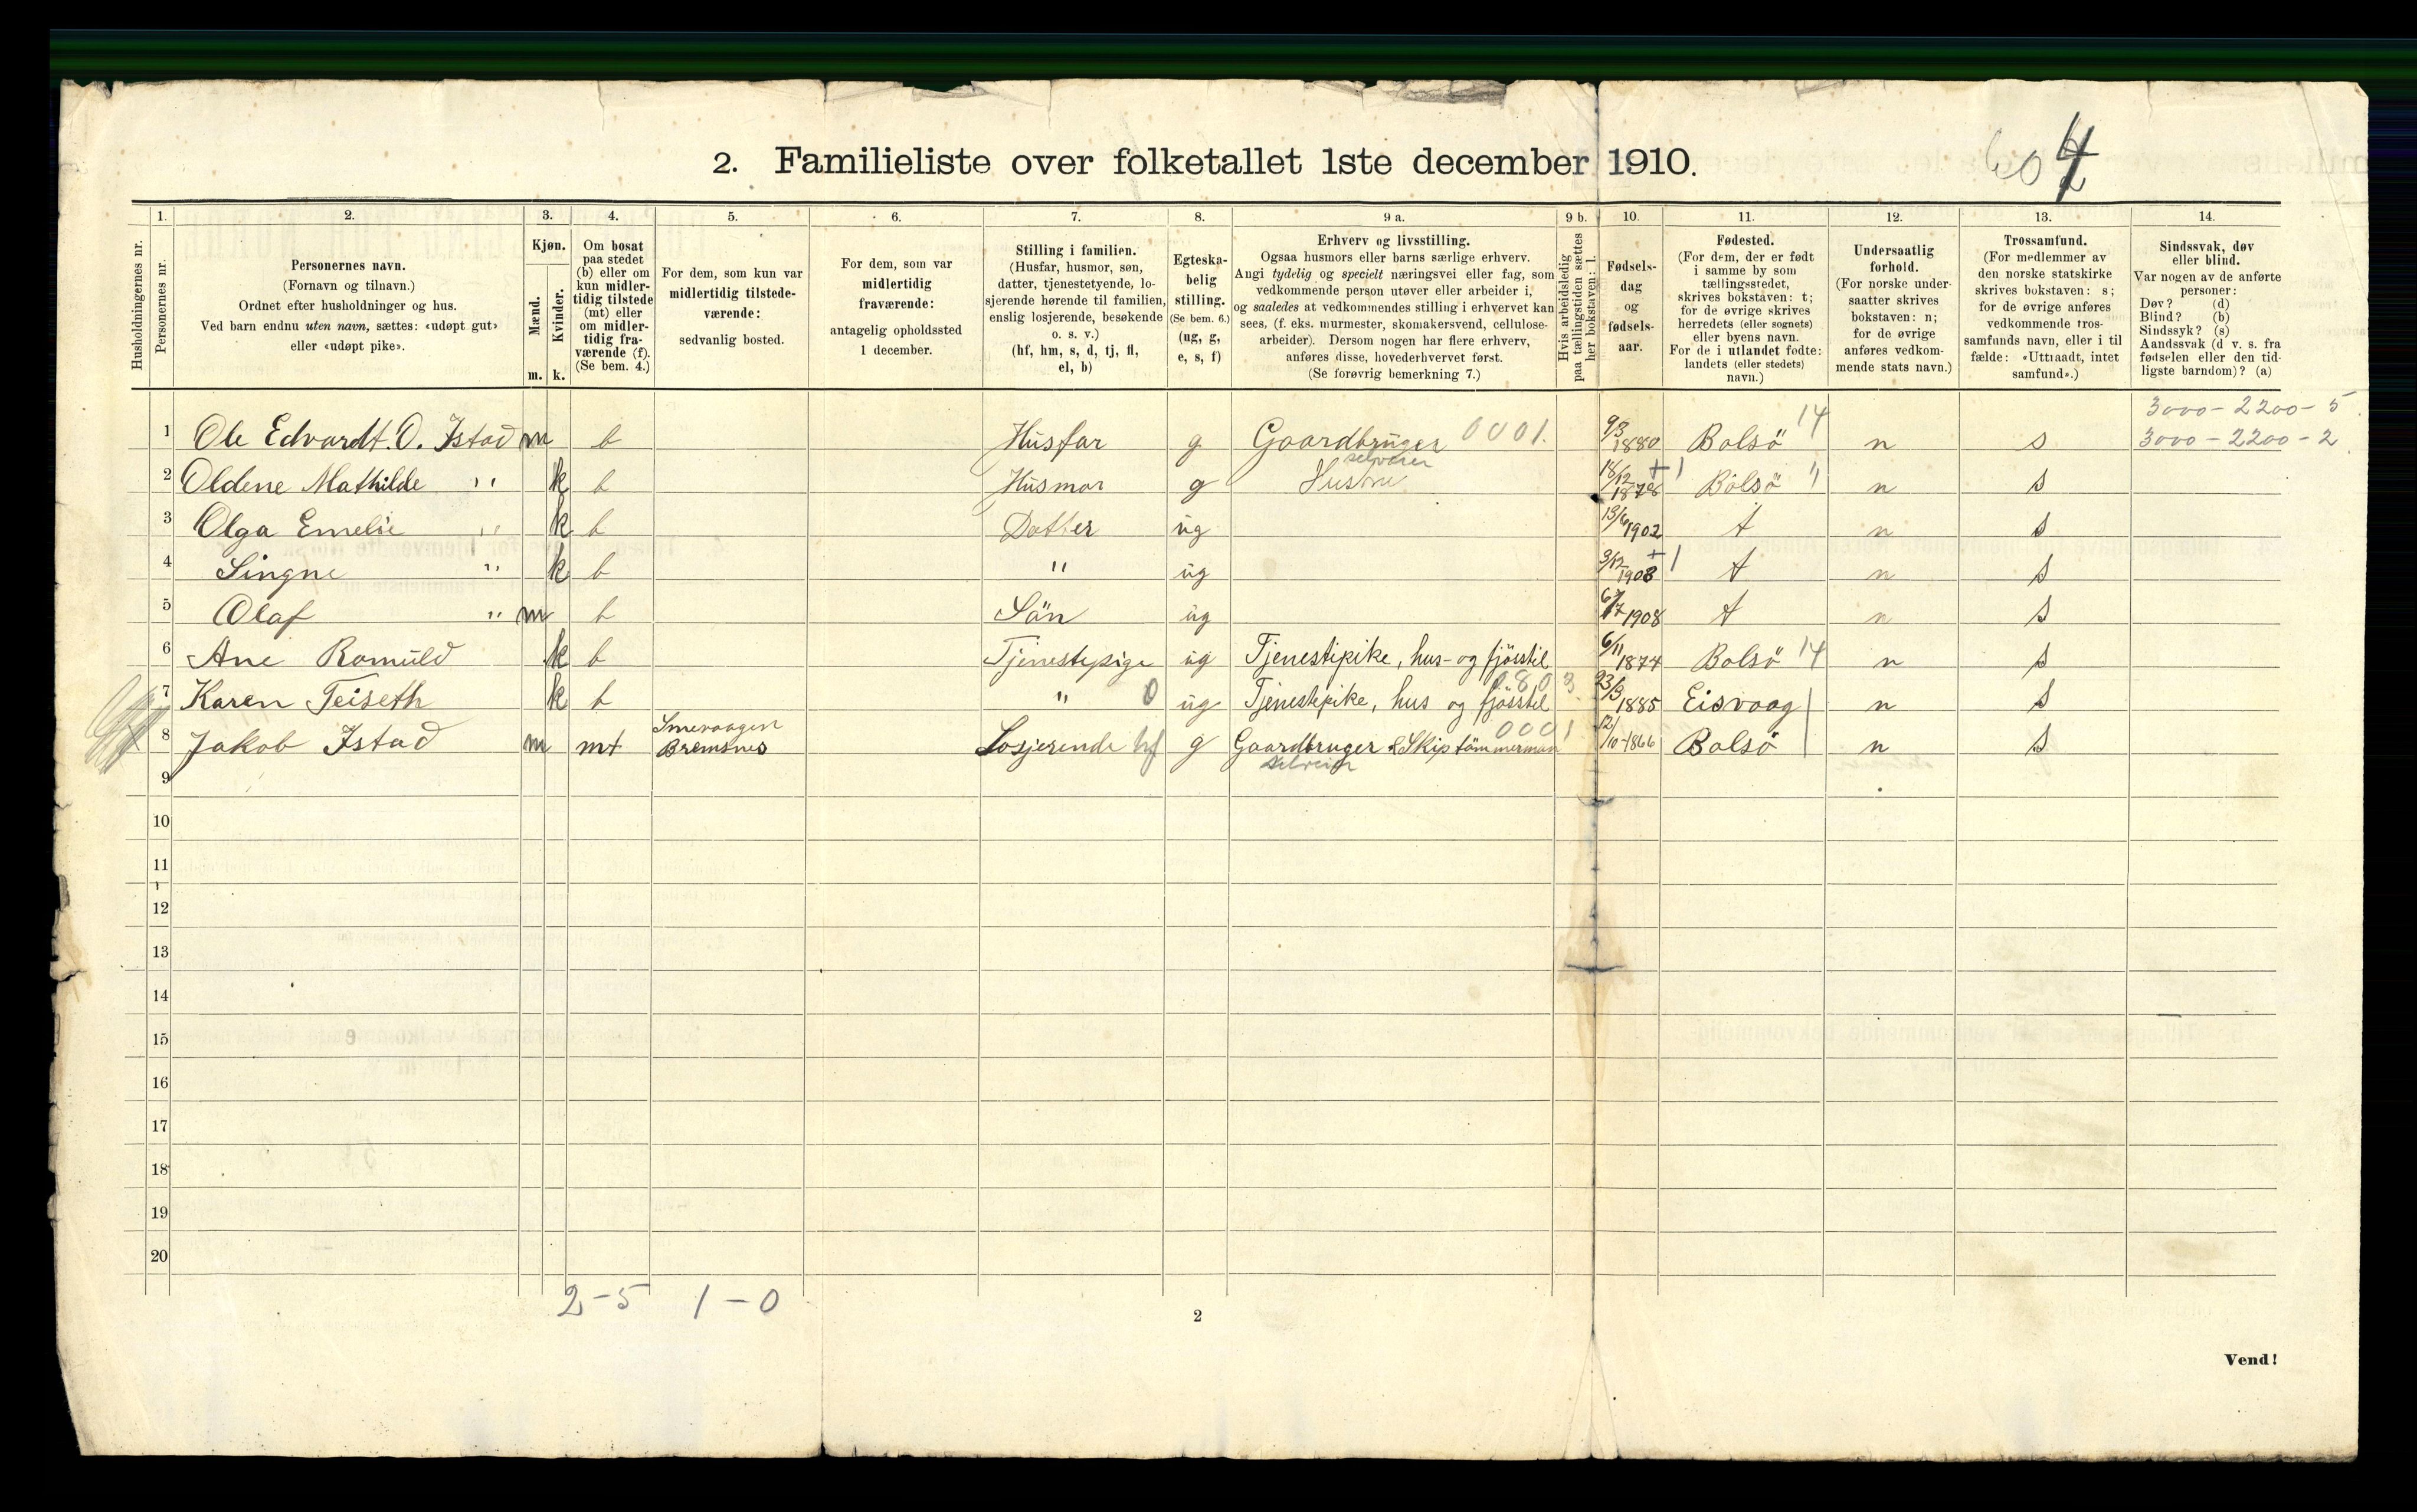 2. Familieliste over folketallet 1ste december 1910.
604
1. 2. 3. 4. 5. 6. 7. 8. 9 a. 9 b. 10. 11. 12. 13. 14.
Husholdningernes nr.
Personernes nr.
Personernes navn.
(Fornavn og tilnavn.)
Ordnet efter husholdninger og hus.
Ved barn endnu uten navn, sættes: «udøpt gut»
eller «udøpt pike».
Kjøn.
Mænd.
Kvinder.
m. k.
Om bosat
paa stedet
(b) eller om
kun midler-
tidig tilstede
(mt) eller
om midler-
tidig fra-
værende (f).
(Se bem. 4.)
For dem, som kun var
midlertidig tilstede-
værende:
sedvanlig bosted.
For dem, som var
midlertidig
fraværende:
antagelig opholdssted
1 december.
Stilling i familien.
(Husfar, husmor, søn,
datter, tjenestetyende, lo-
sjerende hørende til familien,
enslig losjerende, besøkende
o. s. v.)
(hf, hm, s, d, tj, fl,
el, b)
Egteska-
belig
stilling.
(Se bem. 6.)
(ug, g,
e, s, f)
Erhverv og livsstilling.
Ogsaa husmors eller barns særlige erhverv.
Angi tydelig og specielt næringsvei eller fag, som
vedkommende person utøver eller arbeider i,
og saaledes at vedkommendes stilling i erhvervet kan
sees, (f. eks. murmester, skomakersvend, cellulose-
arbeider). Dersom nogen har flere erhverv,
anføres disse, hovederhvervet først.
(Se forøvrig bemerkning 7.)
Hvis arbeidsledig
paa tællingstiden sættes
her bokstaven: l.
Fødsels-
dag
og
fødsels-
aar.
Fødested.
(For dem, der er født
i samme by som
tællingsstedet,
skrives bokstaven: t;
for de øvrige skrives
herredets (eller sognets)
eller byens navn.
For de i utlandet fødte:
landets (eller stedets)
navn.)
Undersaatlig
forhold.
(For norske under-
saatter skrives
bokstaven: n;
for de øvrige
anføres vedkom-
mende stats navn.)
Trossamfund.
(For medlemmer av
den norske statskirke
skrives bokstaven: s;
for de øvrige anføres
vedkommende tros-
samfunds navn, eller i til
fælde: «Uttraadt, intet
samfund».)
Sindssvak, døv
eller blind.
Var nogen av de anførte
personer:
Døv? (d)
Blind? (b)
Sindssyk? (s)
Aandssvak (d v. s. fra
fødselen eller den tid-
ligste barndom)? (a)
3000-2200-5
1 Ole Edvardt. O. Istad m b Husfar g Gaardbruger 0001. 9/3 1880 Bolsö 14 n s 3000-2200-2
selveier
2 Oldene Mathilde " k b Husmor g 18/12 1878 Bolsö " n s
3 Olga Emelie " k b Datter ug 13/6 1902 t n s
4 Singne " k b " ug 3/12 1903 t n s
5 Olaf " m b Sön ug 1908 t n s
6 Ane Romuld k b Tjenestepige ug Tjenestepike, hus- og fjösstel 6/11 1874 Bolsö 14 n s
0803
7 Karen Teiseth k b " 0 ug Tjenestepike, hus og fjösstel 23/3 1885 Eisvaag n s
0001
8 Jakob Istad m mt Bremsnes Losjerende hf g Gaardbruger & Skiptömmerman 12/10-1866 Bolsö n s
selveier
9
10
11
12
13
14
15
16
17
18
19
20
2-5 1-0
2
Vend!